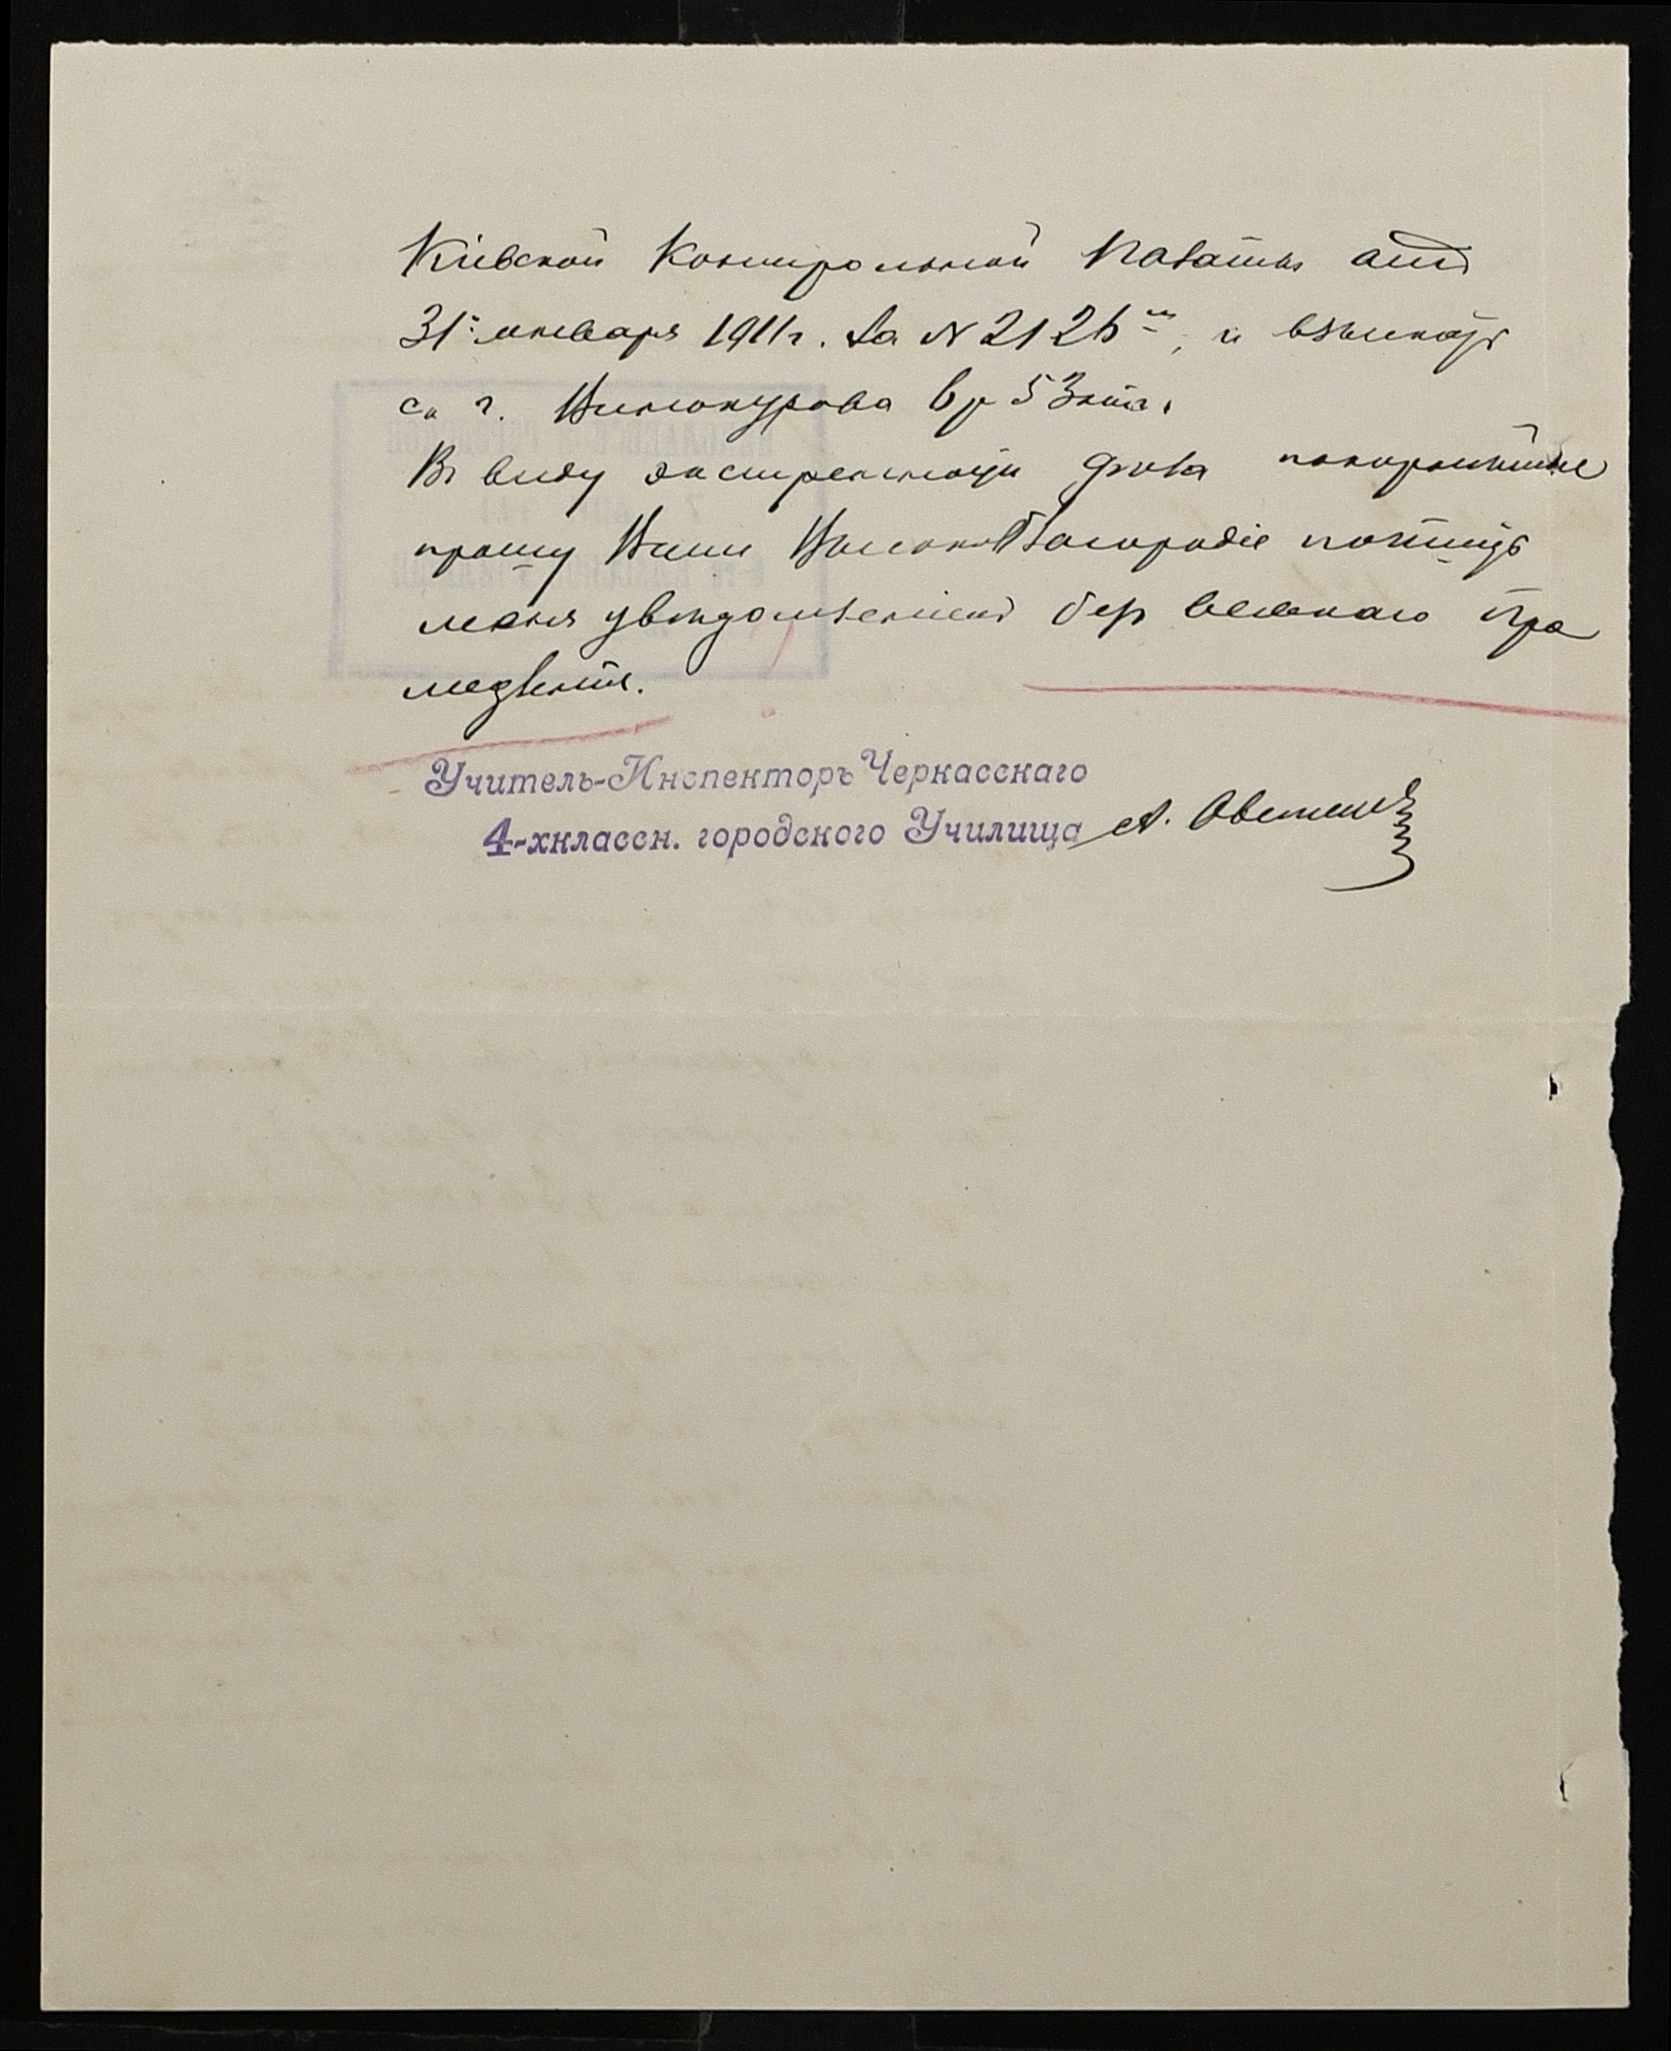 Кіевской Контрольной Палаты отъ
31го января 1911 г. за № 2126мъ, и взыскать
съ г. Винокурова 6 р 53 коп.
Въ виду экстренности дѣла покорнѣйше
прошу Ваше ВысокоБлагородіе почтить
меня увѣдомленіемъ безъ всякаго про
медленія.
Учитель-Инспекторъ Черкасскаго
4-хклассн. городского Училища А.